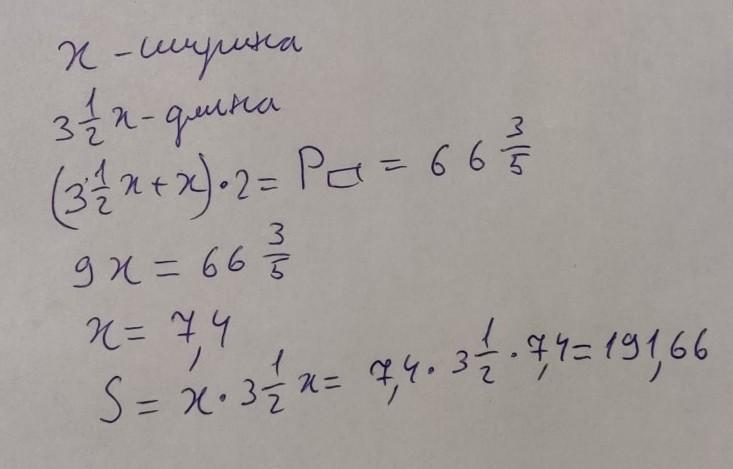 x - ширина
3 1/2 x - длина
(3 1/2 x + x) · 2 = P▭ = 66 3/5
9x = 66 3/5
x = 7,4
S = x · 3 1/2 x = 7,4 · 3 1/2 · 7,4 = 191,66